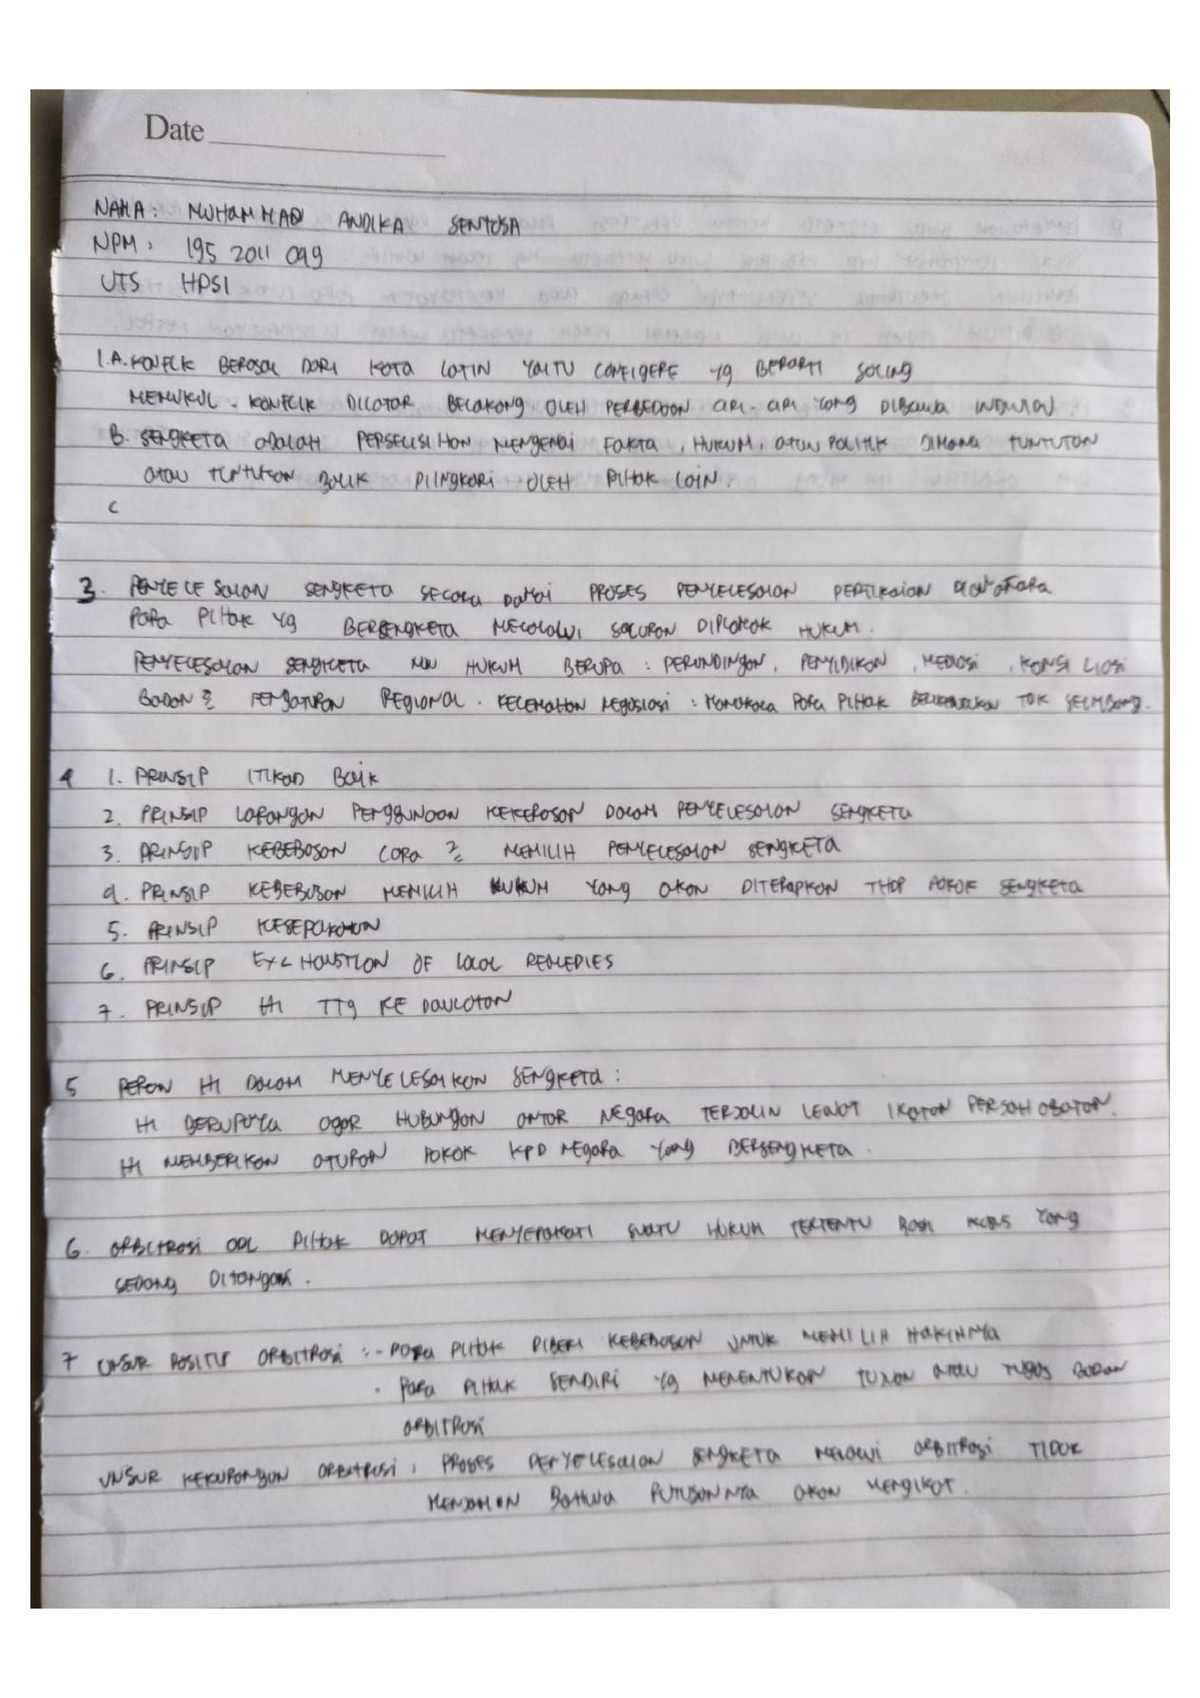 Date
NAMA : MUHAMMAD ANDIKA SENTOSA
NPM : 195 2011 099
UTS HPSI
1.A. KONFLIK BERASAL DARI KATA LATIN YAITU CONFIGERE yg BERARTI SALING
MEMUKUL. KONFLIK DILATAR BELAKANG OLEH PERBEDAAN CIRI-CIRI YANG DIBAWA INDIVIDU.
B. SENGKETA ADALAH PERSELISIHAN MENGENAI FAKTA, HUKUM, ATAU POLITIK DIMANA TUNTUTAN
ATAU TUNTUTAN BALIK DIINGKARI OLEH PIHAK LAIN.
C
3. PENYELESAIAN SENGKETA SECARA DAMAI PROSES PENYELESAIAN PERTIKAIAN DIANTARA
PARA PIHAK yg BERSENGKETA MELALUI SALURAN DIPLOMATIK HUKUM.
PENYELESAIAN SENGKETA MNR HUKUM BERUPA : PERUNDINGAN, PENYIDIKAN, MEDIASI, KONSILIASI
BADAN2 PENGATURAN REGIONAL. KELEMAHAN NEGOSIASI : MANAKALA PARA PIHAK BERKEDUDUKAN TAK SEIMBANG.
4 1. PRINSIP ITIKAD BAIK
2. PRINSIP LARANGAN PENGGUNAAN KEKERASAN DALAM PENYELESAIAN SENGKETA
3. PRINSIP KEBEBASAN CARA2 MEMILIH PENYELESAIAN SENGKETA
4. PRINSIP KEBEBASAN MEMILIH HUKUM YANG AKAN DITERAPKAN THDP POKOK SENGKETA
5. PRINSIP KESEPAKATAN
6. PRINSIP EXCHAUSTION OF LOCAL REMEDIES
7. PRINSIP HI TTG KEDAULATAN
5 PERAN HI DALAM MENYELESAIKAN SENGKETA :
HI BERUPAYA AGAR HUBUNGAN ANTAR NEGARA TERJALIN LEWAT IKATAN PERSAHABATAN.
HI MEMBERIKAN ATURAN POKOK KPD NEGARA YANG BERSENGKETA.
6. ARBITRASI ADL PIHAK DAPAT MENYEPAKATI SUATU HUKUM TERTENTU BAGI KASUS YANG
SEDANG DITANGANI.
7 UNSUR POSITIF ARBITRASI : - PARA PIHAK DIBERI KEBEBASAN UNTUK MEMILIH HAKIMNYA
- PARA PIHAK SENDIRI yg MENENTUKAN TUJUAN ATAU TUGAS BADAN
ARBITRASI
UNSUR KEKURANGAN ARBITRASI : PROSES PENYELESAIAN SENGKETA MELALUI ARBITRASI TIDAK
MENJAMIN BAHWA PUTUSANNYA AKAN MENGIKAT.